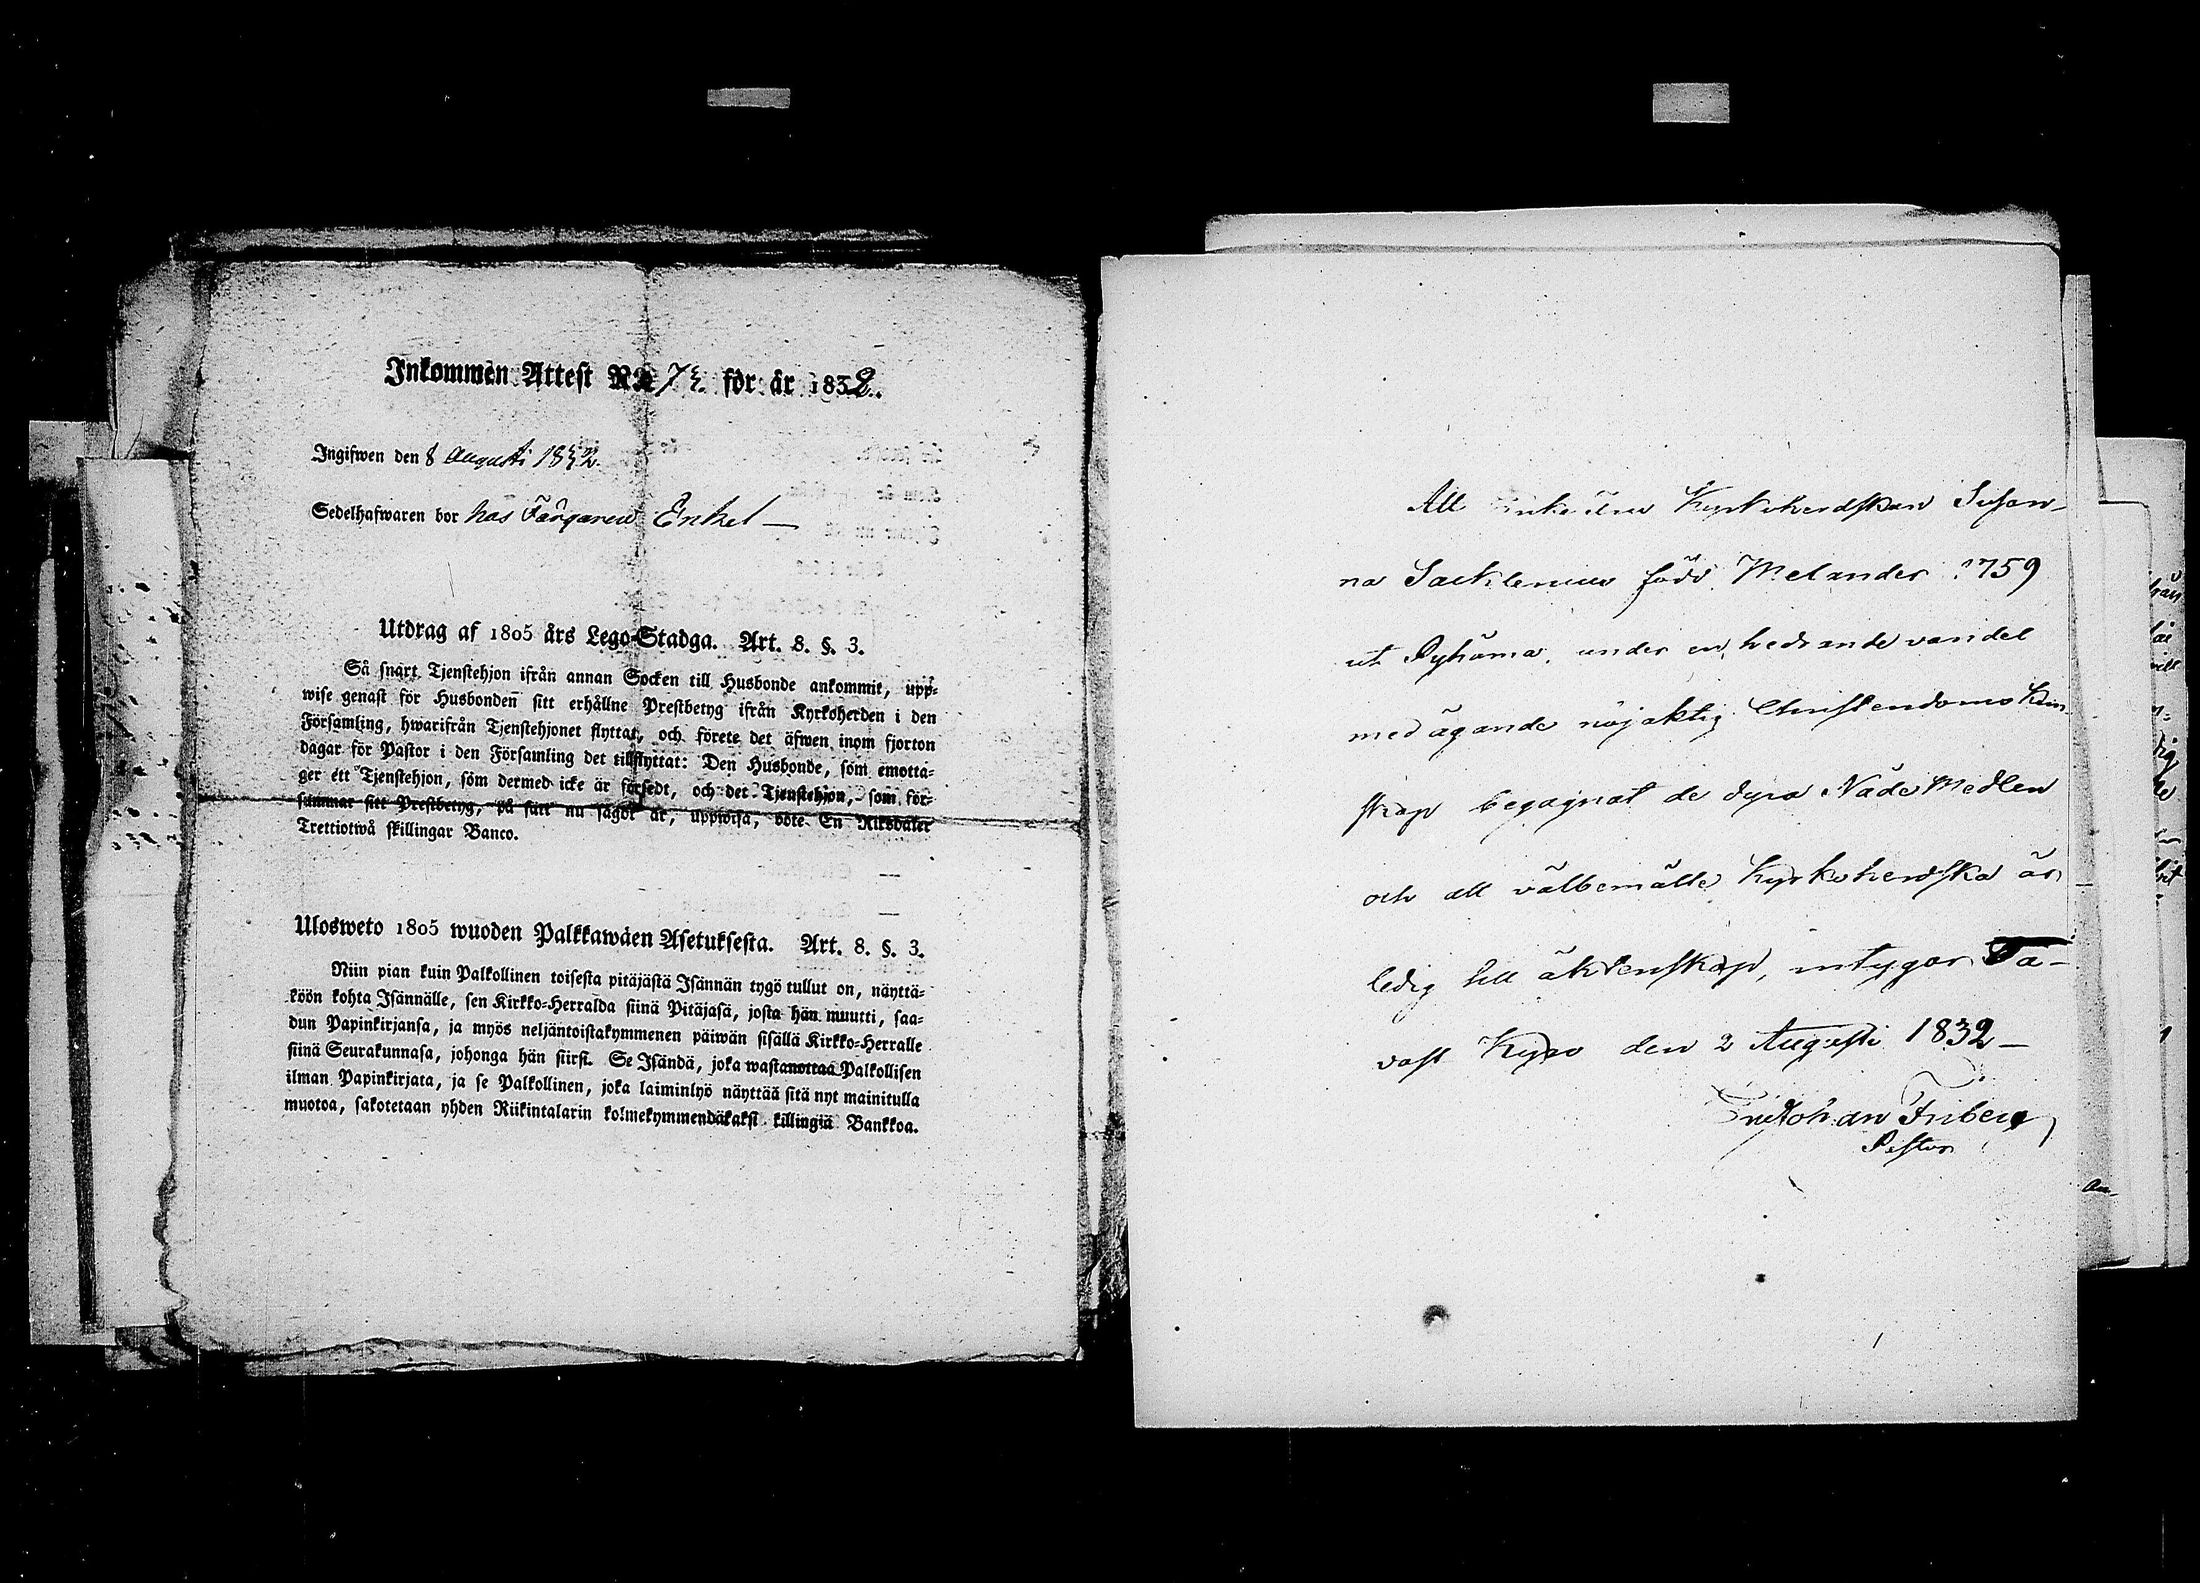 Inkommen Attest N:o för år 1832.
Ingifwen den 8 Augusti 1832.
Sedelhafwaren bor hos Färgaren Enkel
Utdrag af 1805 års Lego-Stadga. Art. 8. §. 3.
Så snart Tjenstehjon ifrån annan Socken till Husbonde ankommit, upp-
wise genast för Husbonden sitt erhållne Prestbetyg ifrån Kyrkoherden i den
Församling, hwarifrån Tjenstehjonet flyttat, och förete det äfwen inom fjorton
dagar för Pastor i den Församling det tillflyttat: Den Husbonde, som emotta-
ger ett Tjenstehjon, som dermed icke är försedt, och det Tjenstehjon, som för-
summar sitt Prestbetyg, på sätt nu sagdt är, uppwisa, böte En Riksdaler
Trettiotwå skillingar Banco.
Ulosweto 1805 wuoden Palkkawäen Asetuksesta. Art. 8. §. 3.
Niin pian kuin Palkollinen toisesta pitäjästä Isännän tygö tullut on, näyttä-
köön kohta Isännälle, sen Kirkko-Herralda siinä Pitäjäsä, josta hän muutti, saa-
dun Papinkirjansa, ja myös neljäntoistakymmenen päiwän sisällä Kirkko-Herralle
siinä Seurakunnasa, johonga hän siirsi. Se Isändä, joka wastanottaa Palkollisen
ilman Papinkirjata, ja se Palkollinen, joka laiminlyö näyttää sitä nyt mainitulla
muotoa, sakotetaan yhden Riikintalarin kolmekymmendäkaksi killingiä Bankkoa.
Att Kyrkoherdskan Susan-
na Sacklenius född Melander 1759
ut Pyhäma, under en hedrande vandel
med ägande nöjaktig Christendoms Kun-
skap begagnat de dyra NådeMedlen
och att välbemälte Kyrkoherdska är
ledig till äktenskap, intygar Ta-
vast Kyro den 2 Augusti 1832
Johan Friberg
Pastor